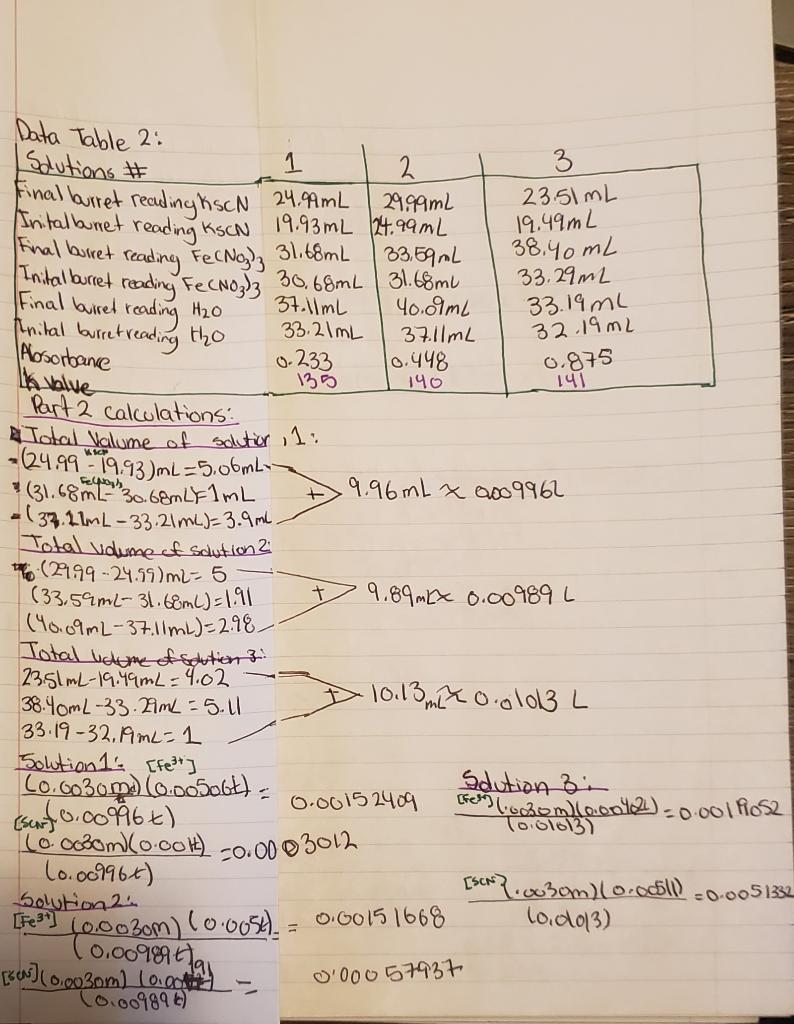 Data Table 2:
Solutions # 1 2 3
Final burret reading KSCN 24.99mL 29.99mL 23.51mL
Inital burret reading KSCN 19.93mL 24.99mL 19.49mL
Final burret reading Fe(NO3)3 31.68mL 33.59mL 38.40 mL
Inital burret reading Fe(NO3)3 30.68mL 31.68mL 33.29mL
Final burret reading H2O 37.11mL 40.09mL 33.19mL
Inital burret reading H2O 33.21mL 37.11mL 32.19mL
Absorbance 0.233 0.448 0.875
K value 135 140 141
Part 2 calculations:
Total Volume of solution, 1:
KSCN
-(24.99-19.93)mL=5.06mL
Fe(NO3)3
(31.68mL-30.68mL)=1mL + 9.96mL ≈ 0.00996L
-(37.11mL-33.21mL)=3.9mL
Total volume of solution 2:
(29.99-24.99)mL= 5
(33.59mL-31.68mL)=1.91 + 9.89mL≈ 0.00989 L
(40.09mL-37.11mL)=2.98
Total volume of solution 3:
23.51mL-19.49mL=4.02
38.40mL-33.29mL=5.11 + 10.13mL≈ 0.01013 L
33.19-32.19mL=1
Solution 1: [Fe3+]
(0.0030m)(0.00506L) = 0.00152409
(0.00996L)
[SCN-]
(0.0030m)(0.001L) =0.0003012
(0.00996L)
Solution 2:
[Fe3+] (0.0030m)(0.005L) = 0.00151668
(0.00989L)
[SCN-] (0.0030m)(0.00191) = 0.00057937
(0.00989L)
Solution 3:
[Fe3+] (.0030m)(0.00402L) =0.00119052
(0.01013)
[SCN-] (.0030m)(0.00511) =0.0051332
(0.01013)